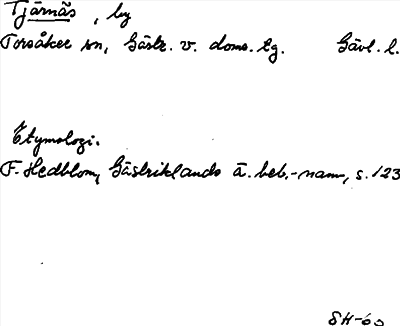 Tjärnäs, by
Torsåker sn, Gästr. v. doms. tg. Gävl. l.
Etymologi.
F. Hedblom, Gästriklands ä. beb.-namn, s. 123
SH-60